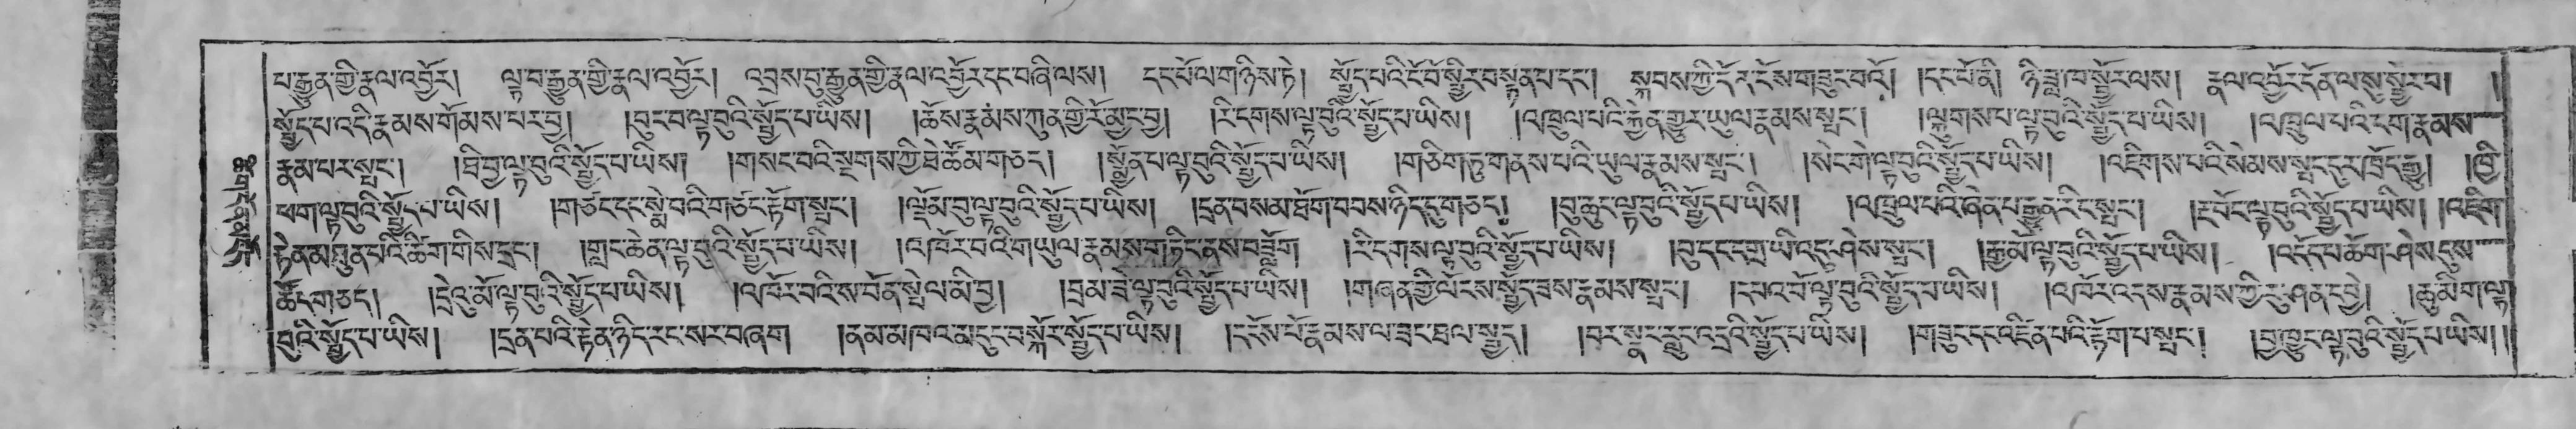 པ་རྒྱུན་གྱི་རྣལ་འབྱོར། ལྟ་བ་རྒྱུན་གྱི་རྣལ་འབྱོར། འབྲས་བུ་རྒྱུན་གྱི་རྣལ་འབྱོར་དང་བཞི་ལས། དང་པོ་ལ་གཉིས་ཏེ། སྤྱོད་པའི་ངོ་བོ་སྤྱིར་བསྟན་པ་དང༌། སྐབས་ཀྱི་དོན་ངོས་གཟུང་བའོ། །དང་པོ་ནི། ཉི་ཟླ་ཁ་སྦྱོར་ལས། རྣལ་འབྱོར་དོན་ལ་སུ་སྦྱོར་བ། །
སྤྱོད་པ་འདི་རྣམས་གོམས་པར་བྱ། །བུང་བ་ལྟ་བུའི་སྤྱོད་པ་ཡིས། །ཆོས་རྣམས་ཀུན་གྱི་རོ་མྱང་བྱ། །རི་དགས་ལྟ་བུའི་སྤྱོད་པ་ཡིས། །འཁྲུལ་པའི་རྐྱེན་གྱུར་ཡུལ་རྣམས་སྤང༌། །ལྐུགས་པ་ལྟ་བུའི་སྤྱོད་པ་ཡིས། །འཁྲུལ་པའི་ངག་རྣམས
རྣམ་པར་སྤང༌། །ཐི་བྱ་ལྟ་བུའི་སྤྱོད་པ་ཡིས། །གསང་བའི་སྔགས་ཀྱི་ཐེ་ཚོམ་གཅད། །སྨྱོན་པ་ལྟ་བུའི་སྤྱོད་པ་ཡིས། །གཅིག་ཏུ་གནས་པའི་ཡུལ་རྣམས་སྤང༌། །སེང་གེ་ལྟ་བུའི་སྤྱོད་པ་ཡིས། །འཇིགས་པའི་སེམས་སྤང་དུར་ཁྲོད་རྒྱུ། །ཁྱི
ཕག་ལྟ་བུའི་སྤྱོད་པ་ཡིས། །གཙང་དང་སྨེ་བའི་གཙང་རྟོག་སྤང༌། །ལྡོམ་བུ་ལྟ་བུའི་སྤྱོད་པ་ཡིས། །དྲན་བསམ་ཐོག་བབས་ཉིད་དུ་གཅད། །བུ་ཆུང་ལྟ་བུའི་སྤྱོད་པ་ཡིས། །འཁྲུལ་པའི་ཞེན་པ་རྒྱུན་རིང་སྤང༌། །རྔ་བོང་ལྟ་བུའི་སྤྱོད་པ་ཡིས། །འཇིག
རྟེན་མཐུན་པའི་ཚིག་གིས་དྲང༌། །གླང་ཆེན་ལྟ་བུའི་སྤྱོད་པ་ཡིས། །འཁོར་བའི་ག་ཡུལ་རྣམས་གཏིང་ནས་བཟློག །རི་དགས་ལྟ་བུའི་སྤྱོད་པ་ཡིས། །བུ་དང་དགྲ་ཡི་འདུ་ཤེས་སྤང༌། །རྒྱ་མོ་ལྟ་བུའི་སྤྱོད་པ་ཡིས། །འདོད་པ་ཆོག་ཤེས་དུས
ཚོད་གཅད། །དྲེའུ་མོ་ལྟ་བུའི་སྤྱོད་པ་ཡིས། །འཁོར་བའི་ས་བོན་སྤེལ་མི་བྱ། །བྲམ་ཟེ་ལྟ་བུའི་སྤྱོད་པ་ཡིས། །གཞན་གྱི་ལོངས་སྤྱོད་ཟས་རྣམས་སྤང༌། །དཔའ་བོ་ལྟ་བུའི་སྤྱོད་པ་ཡིས། །འཁོར་འདས་རྣམས་ཀྱི་རུ་ཤན་དབྱེ། །ཆུ་མིག་ལྟ
བུའི་སྤྱོད་པ་ཡིས། །དྲན་པའི་རྟེན་ཉིད་རང་སར་བཞག །ནམ་མཁའ་མདུང་བསྐོར་སྤྱོད་པ་ཡིས། །དངོས་པོ་རྣམས་ལ་ཟང་ཐལ་སྤྱད། །བར་སྣང་རླུང་འདྲའི་སྤྱོད་པ་ཡིས། །གཟུང་དང་འཛིན་པའི་རྟོག་པ་སྤང༌། །བྱ་ཁྱུང་ལྟ་བུའི་སྤྱོད་པ་ཡིས། །